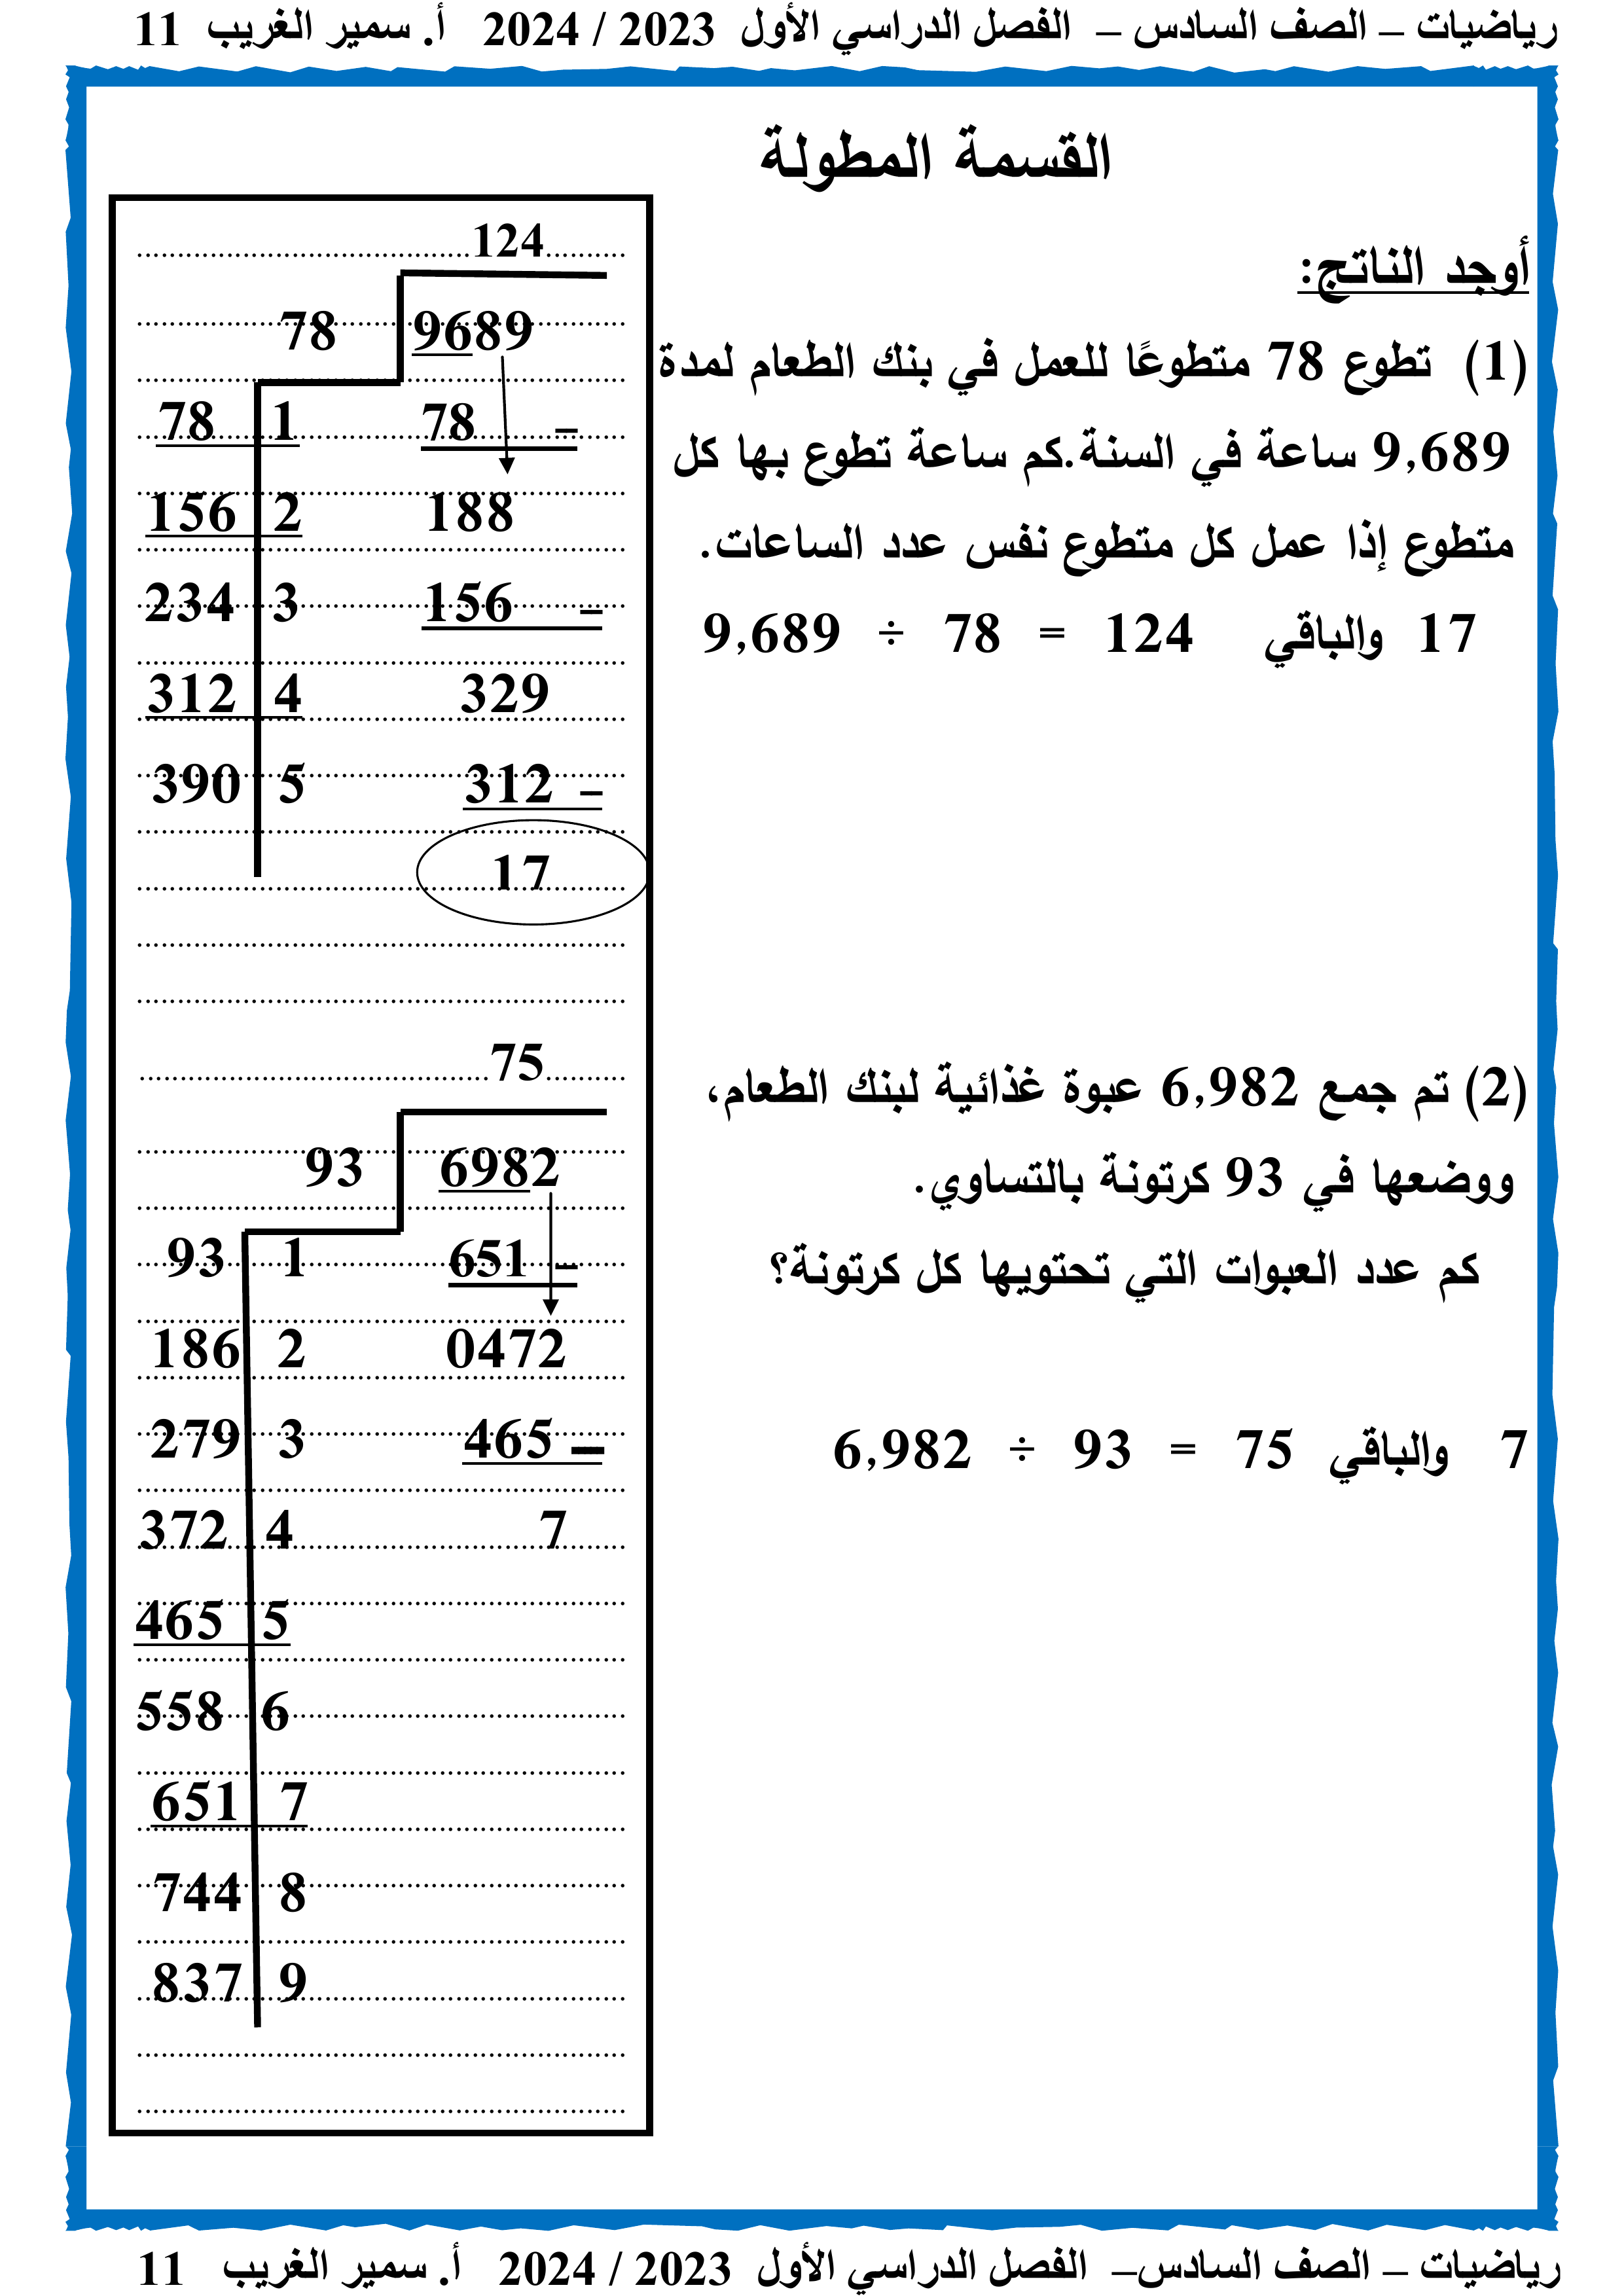 رياضيات – الصف السادس – الفصل الدراسي الأول 2023 / 2024 أ. سمير الغريب 11
القسمة المطولة
أوجد الناتج:
(1) تطوع 78 متطوعًا للعمل في بنك الطعام لمدة
9,689 ساعة في السنة.كم ساعة تطوع بها كل
متطوع إذا عمل كل متطوع نفس عدد الساعات.
9,689 ÷ 78 = 124 والباقي 17
124
78 9689
78 1 78 –
156 2 188
234 3 156 –
312 4 329
390 5 312 –
17
(2) تم جمع 6,982 عبوة غذائية لبنك الطعام،
ووضعها في 93 كرتونة بالتساوي.
كم عدد العبوات التي تحتويها كل كرتونة؟
6,982 ÷ 93 = 75 والباقي 7
75
93 6982
93 1 651 –
186 2 0472
279 3 465 –
372 4 7
465 5
558 6
651 7
744 8
837 9
رياضيات – الصف السادس– الفصل الدراسي الأول 2023 / 2024 أ. سمير الغريب 11